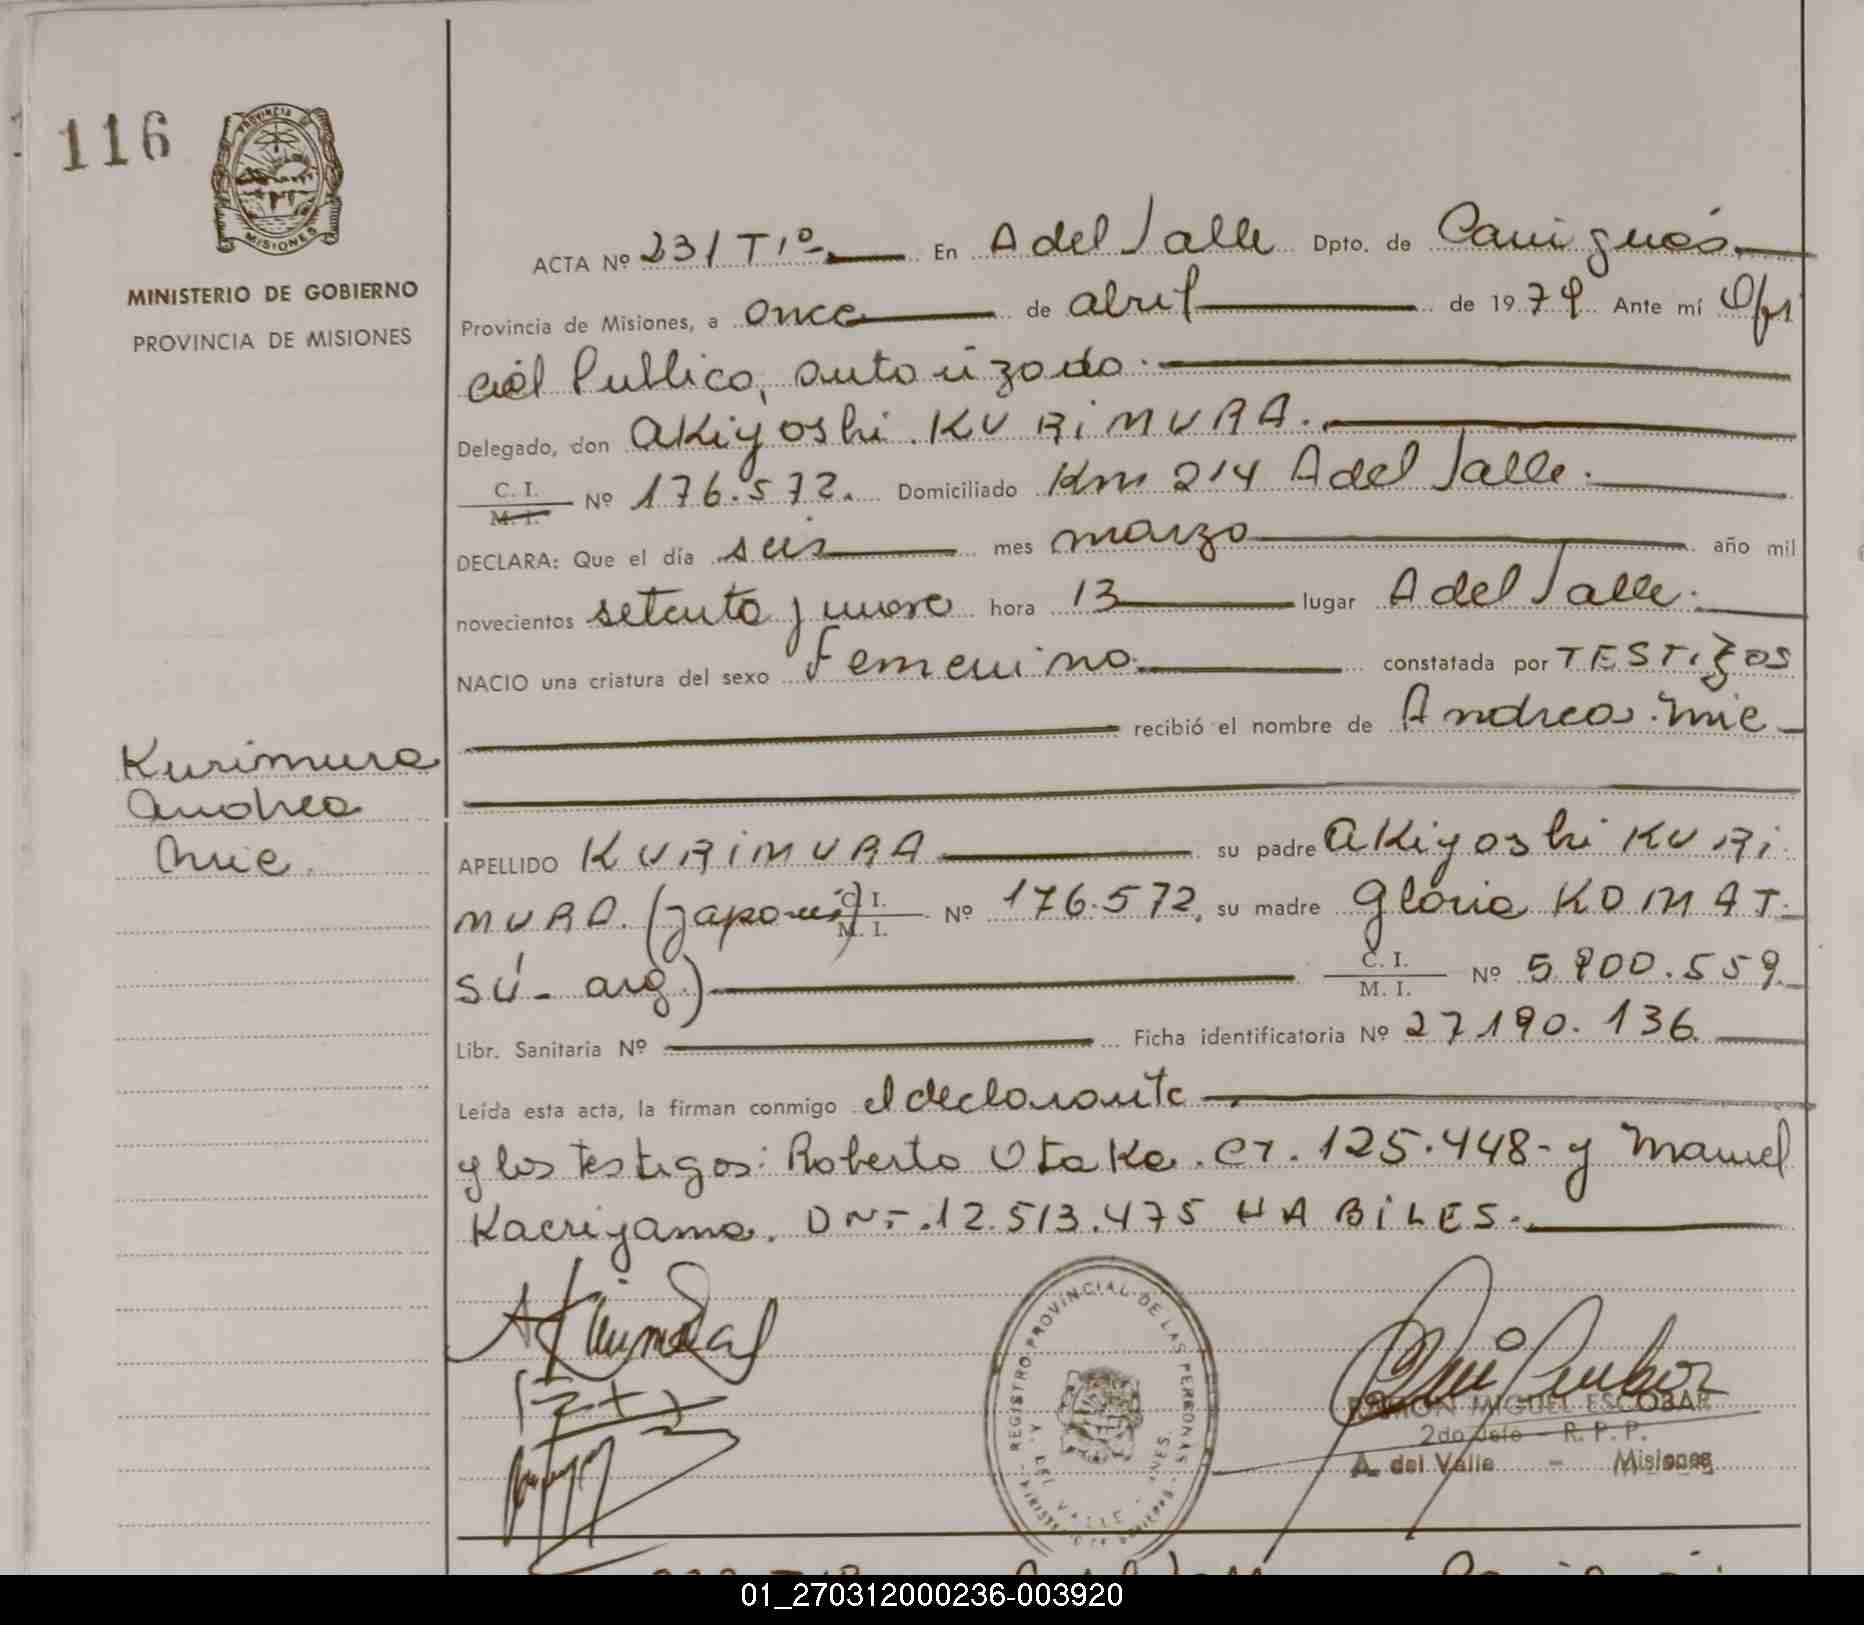 116
PROVINCIA DE
MISIONES
MINISTERIO DE GOBIERNO
PROVINCIA DE MISIONES
ACTA Nº 231 Tº 1º En A del Valle Dpto. de Cainguás
Provincia de Misiones, a once de abril de 1979 Ante mí Ofi
cial Publico, autorizado
Delegado, don Akiyoshi KURIMURA.
C. I.
M. I. Nº 176.572. Domiciliado Km 214 A del Valle.
DECLARA: Que el día seis mes marzo año mil
novecientos setenta y nueve hora 13 lugar A del Valle.
NACIO una criatura del sexo Femenino. constatada por TESTIGOS
recibió el nombre de Andrea Mie
Kurimura
Andrea
Mie.
APELLIDO KURIMURA su padre Akiyoshi KURI
MURA. (japones) C. I. M. I. Nº 176.572, su madre Gloria KOMAT
SÚ - arg.) C. I. M. I. Nº 5.900.559.
Libr. Sanitaria Nº Ficha identificatoria Nº 27.190.136.
Leída esta acta, la firman conmigo el declarante
y los testigos: Roberto Otaka. CI. 125.448 - y Manuel
DNI. 12.513.475 HABILES.
REGISTRO PROVINCIAL DE LAS PERSONAS
A. DEL VALLE - MNES.
MINISTERIO DE GOBIERNO
RAMON MIGUEL ESCOBAR
2do Jefe - R. P. P.
A. del Valle - Misiones
01_270312000236-003920